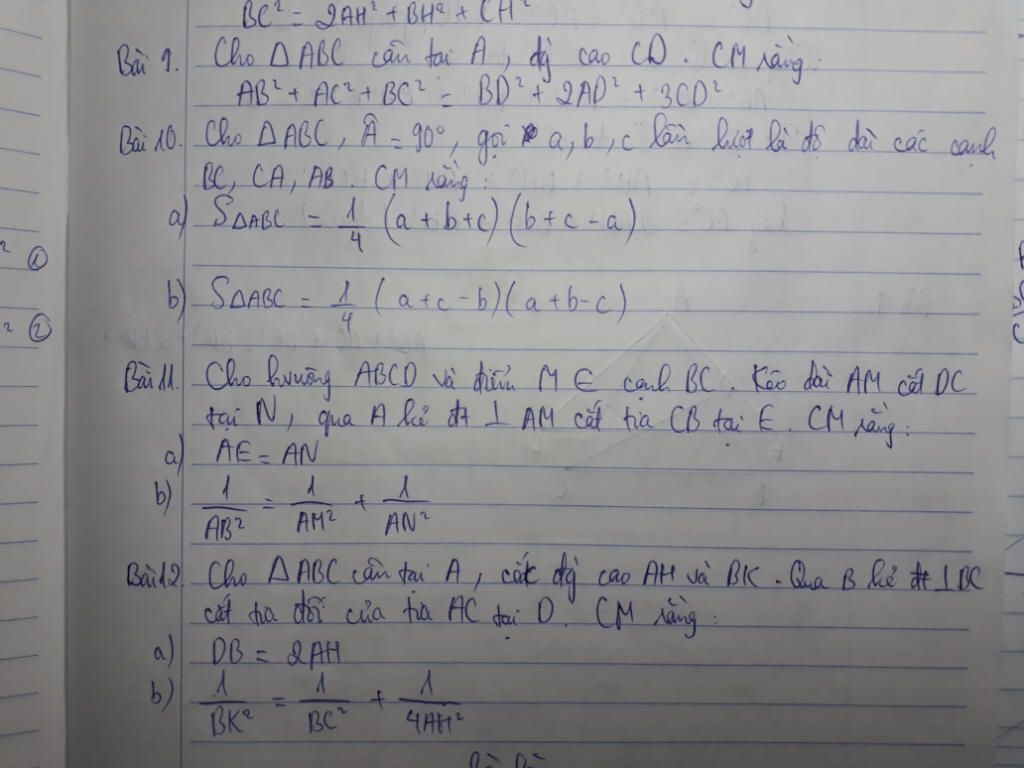 BC² = 2AH² + BH² + CH²
Bài 9. Cho ΔABC cân tại A, đg cao CD. CM rằng:
AB² + AC² + BC² = BD² + 2AD² + 3CD²
Bài 10. Cho ΔABC, Â = 90°, gọi a, b, c lần lượt là độ dài các cạnh
BC, CA, AB. CM rằng:
a) SΔABC = 1/4 (a + b + c)(b + c - a)
² ①
b) SΔABC = 1/4 (a + c - b)(a + b - c)
² ②
Bài 11. Cho hvuông ABCD và điểm M ∈ cạnh BC. Kéo dài AM cắt DC
tại N, qua A kẻ đt ⊥ AM cắt tia CB tại E. CM rằng:
a) AE = AN
b) 1/AB² = 1/AM² + 1/AN²
Bài 12. Cho ΔABC cân tại A, các đg cao AH và BK. Qua B kẻ đt ⊥ BC
cắt tia đối của tia AC tại D. CM rằng:
a) DB = 2AH
b) 1/BK² = 1/BC² + 1/4AH²